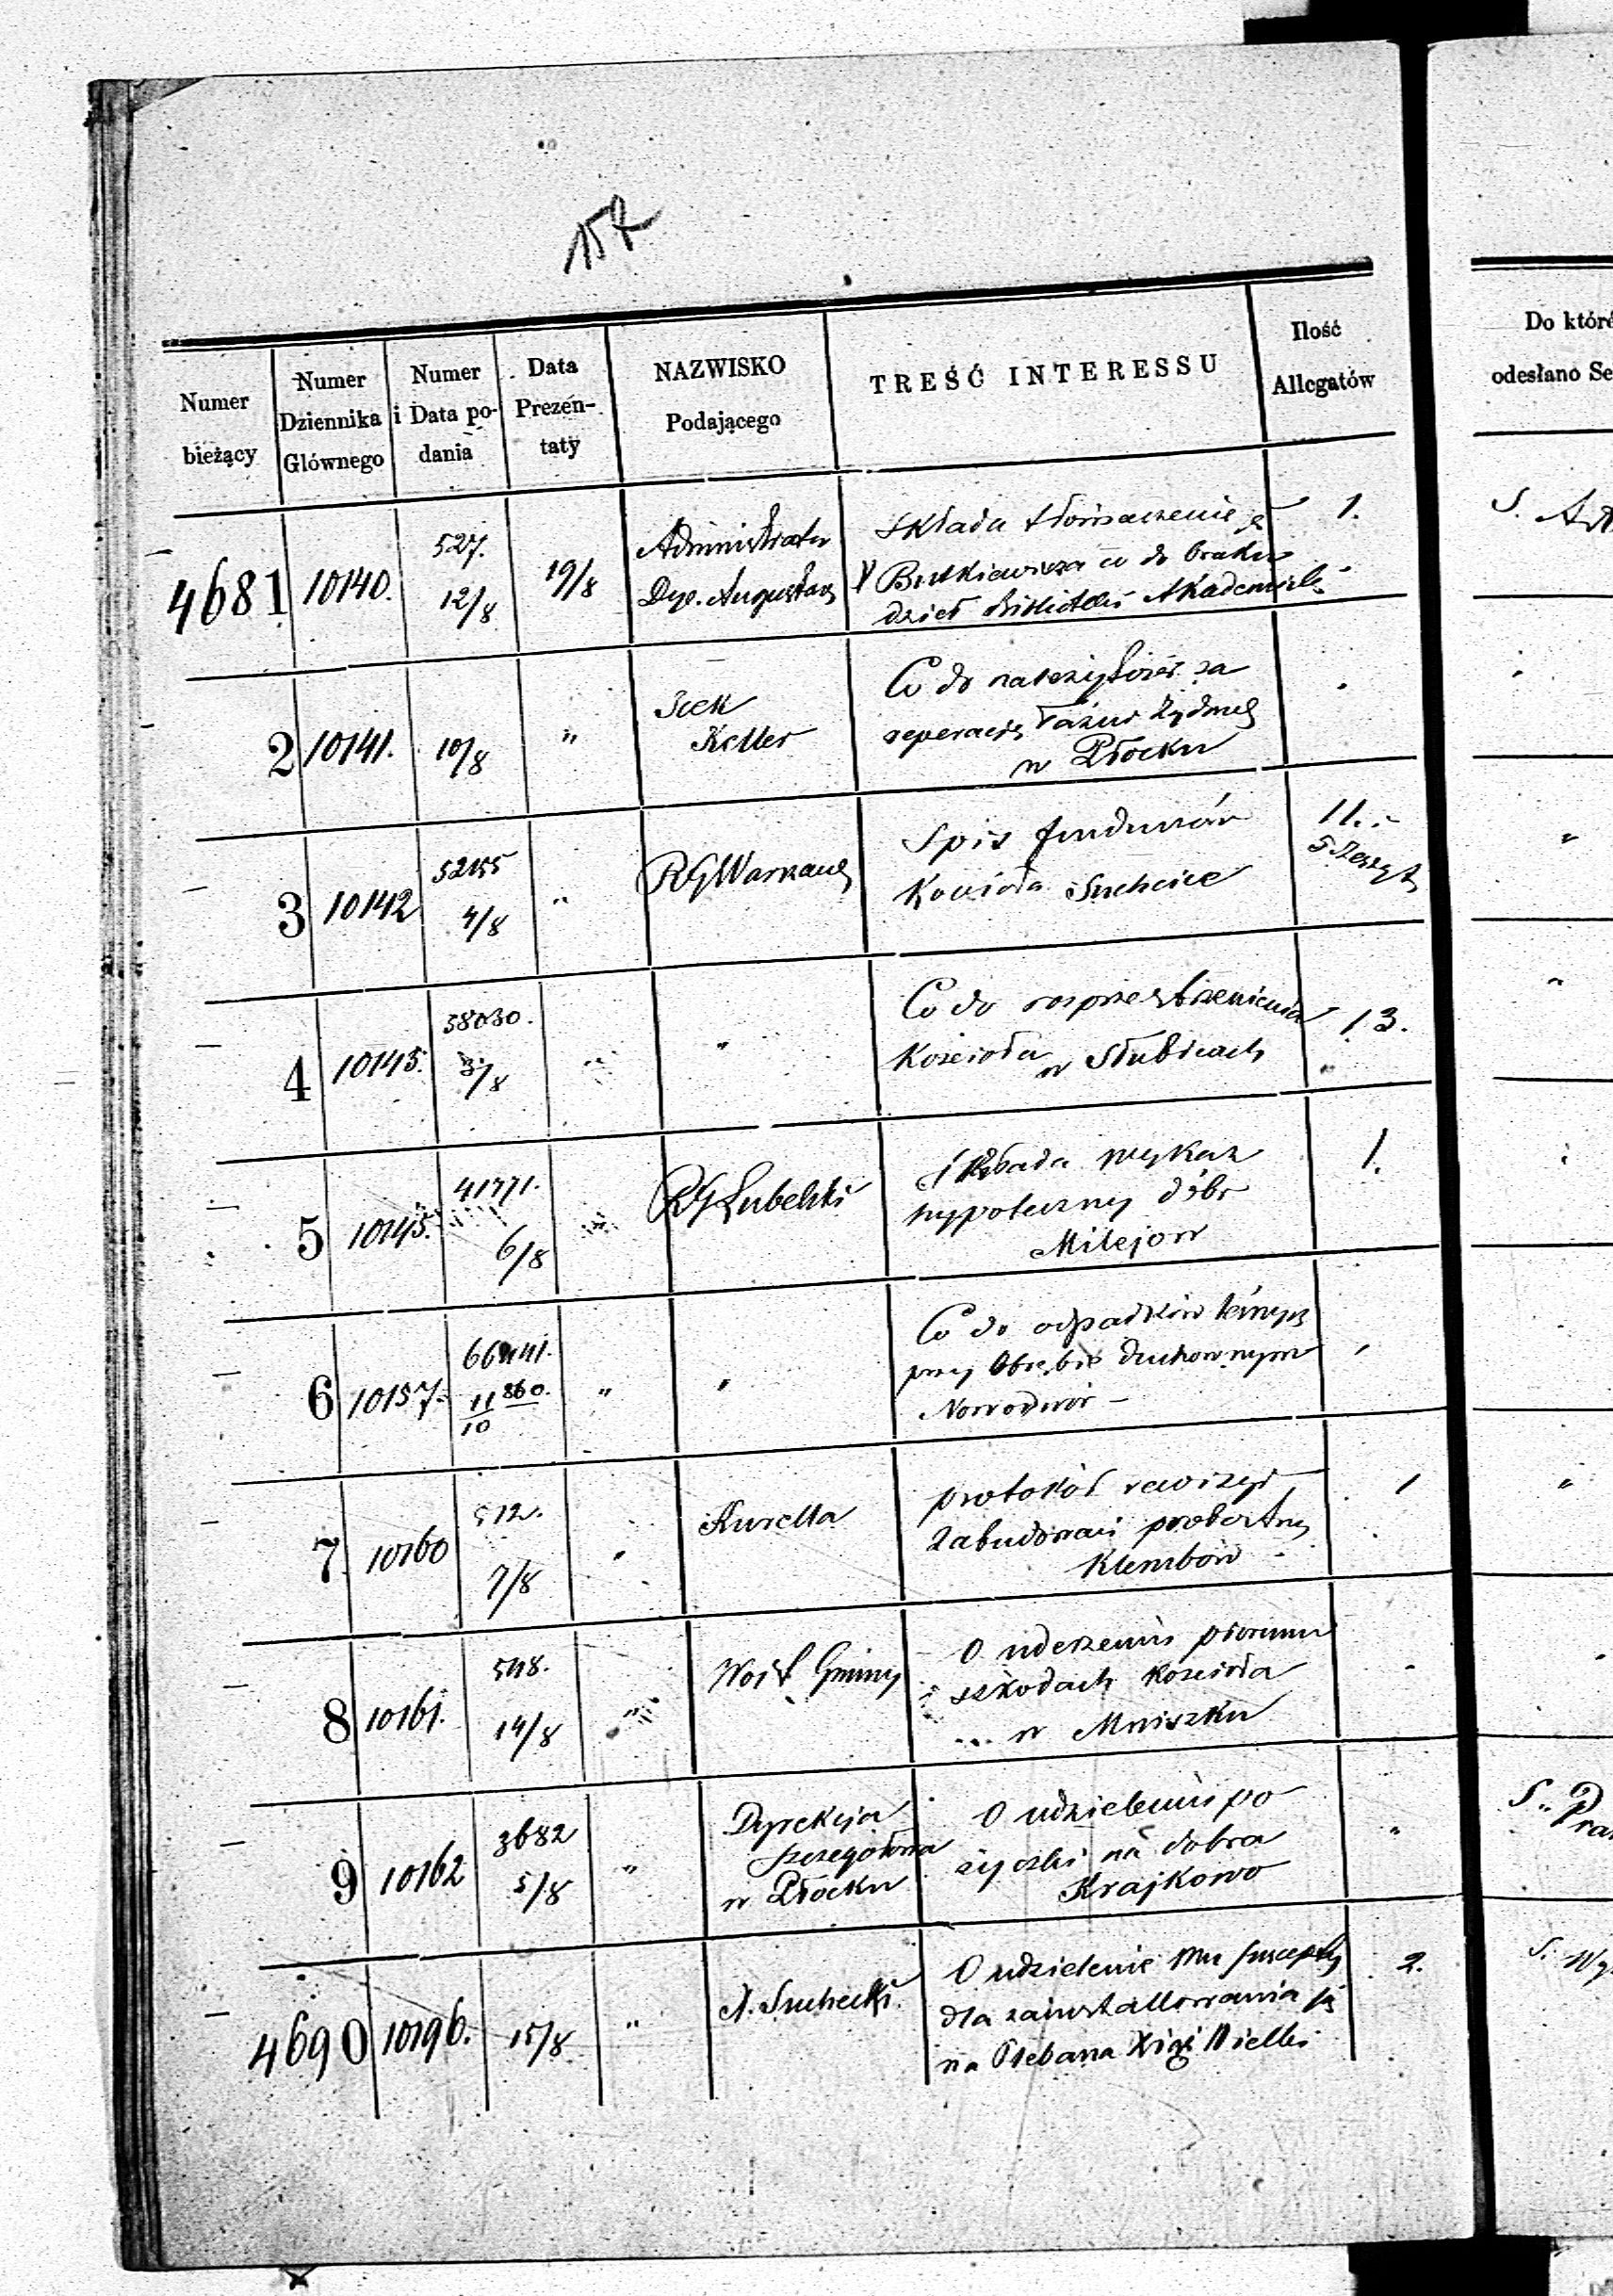 157
Numer bieżący
Numer Dziennika Głównego
Numer i Data podania
Data Prezentaty
NAZWISKO Podającego
TREŚĆ INTERESSU
Ilość Allegatów
Do które
odesłano Se
4681 10140. 527. 12/8 19/8
Administrator
Dye. Augustows
Składa tłómaczenie
Butkiewicza co do braku
dzieł Biblioteki Akademick
1.
S.
2 10141. 10/8 "
Icek
Keller
Co do należytości za
reperacię łaźni Żydows
w Płocku
3 10142 52155 4/8 "
RGWarszaws
Spis funduszów
Kościoła Suchcice
11.
5 Zeszyt
4 10145. 58030. 3/8 " "
Co do rozprzestrzenienia
Kościoła w Słubicach
13.
5 10145. 41771. 6/8 "
RGLubelski
Składa wykaz
hypoteczny dóbr
Milejow
1.
6 10157. 66441. 11/10 860. " "
Co do odpadków leśnych
przy Obrębie duchownym
Nowodwór –
7 10160 512. 7/8 "
Kurella
protokół rewizyi
zabudowań probostwa
Klembów
1
8 10161. 548. 14/8 "
Wojt Gminy
O uderzeniu piorunu
i szkodach Kościoła
w Mniszku
9 10162 3682 5/8 "
Dyrekcja
Szczegółowa
w Płocku
O udzieleniu po
życzki na dobra
Krajkowo
S.
4690 10196. 15/8 "
X. Suchecki
O udzielenie mu
dla zainstallowania
na Plebana Wielki
2.
S.